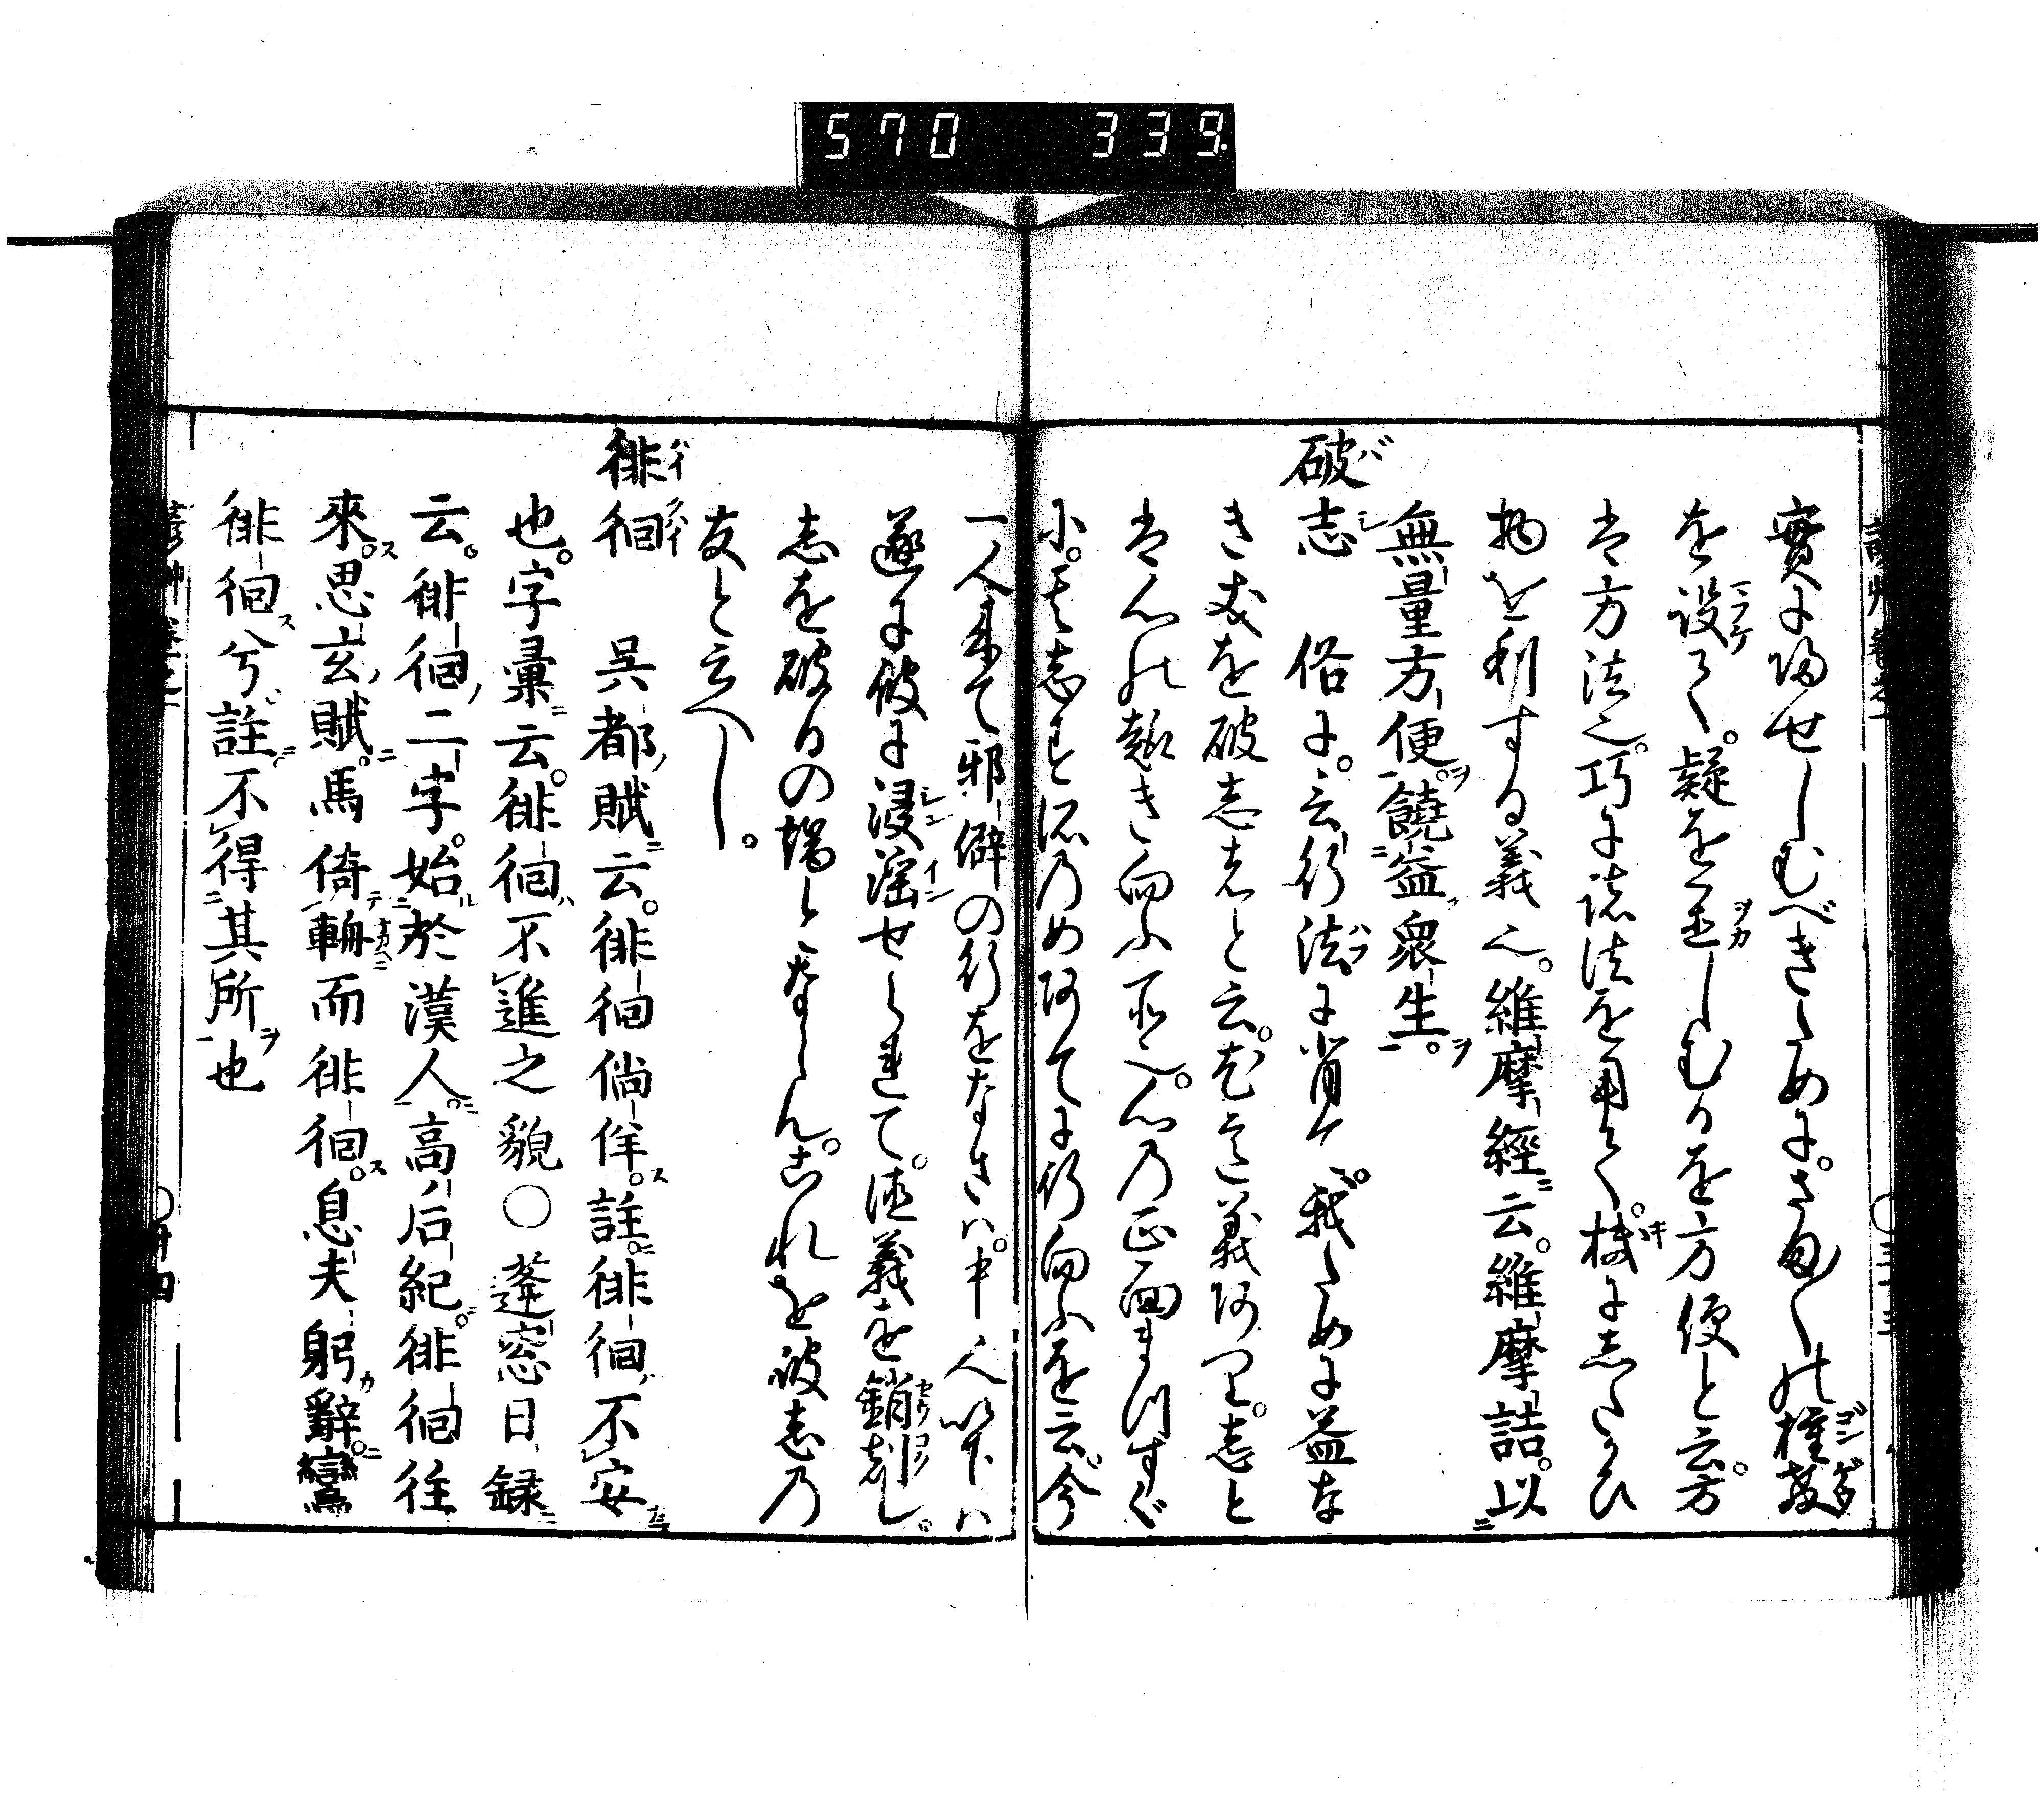 570 339
實に帰せしむべきために。さま〴〵の權教
を設て。疑を並しむるを方便と云。方
は方法也。巧に諸法を用て。機にしたがひ
物を利する義也。維摩經云。維摩詰。以
無量方便。饒益衆生。
破志 俗に。云行法に背ケ。我ために益な
き友を破志ものと云。尤も義あり。志と
は心の趣き向ふ所也。心の正面まつすぐ
に。其志す所のめあてに行向ふを云。今
一人来て邪僻の行をなさハ。中人以下ハ
遂に彼に浸淫せられて。德義を銷刻し。
志を破るの端とならん。これを破志の
友と云べし。
徘徊 呉都賦云。徘徊倘佯。註。徘徊不安
也。字彙云。徘徊不進之貌○蓬窓日録
云。徘徊二字。始於漢人。高后紀。徘徊往
來。思玄賦。馬倚輈而徘徊。息夫躬辭。鸞
徘徊兮。註不得其所也